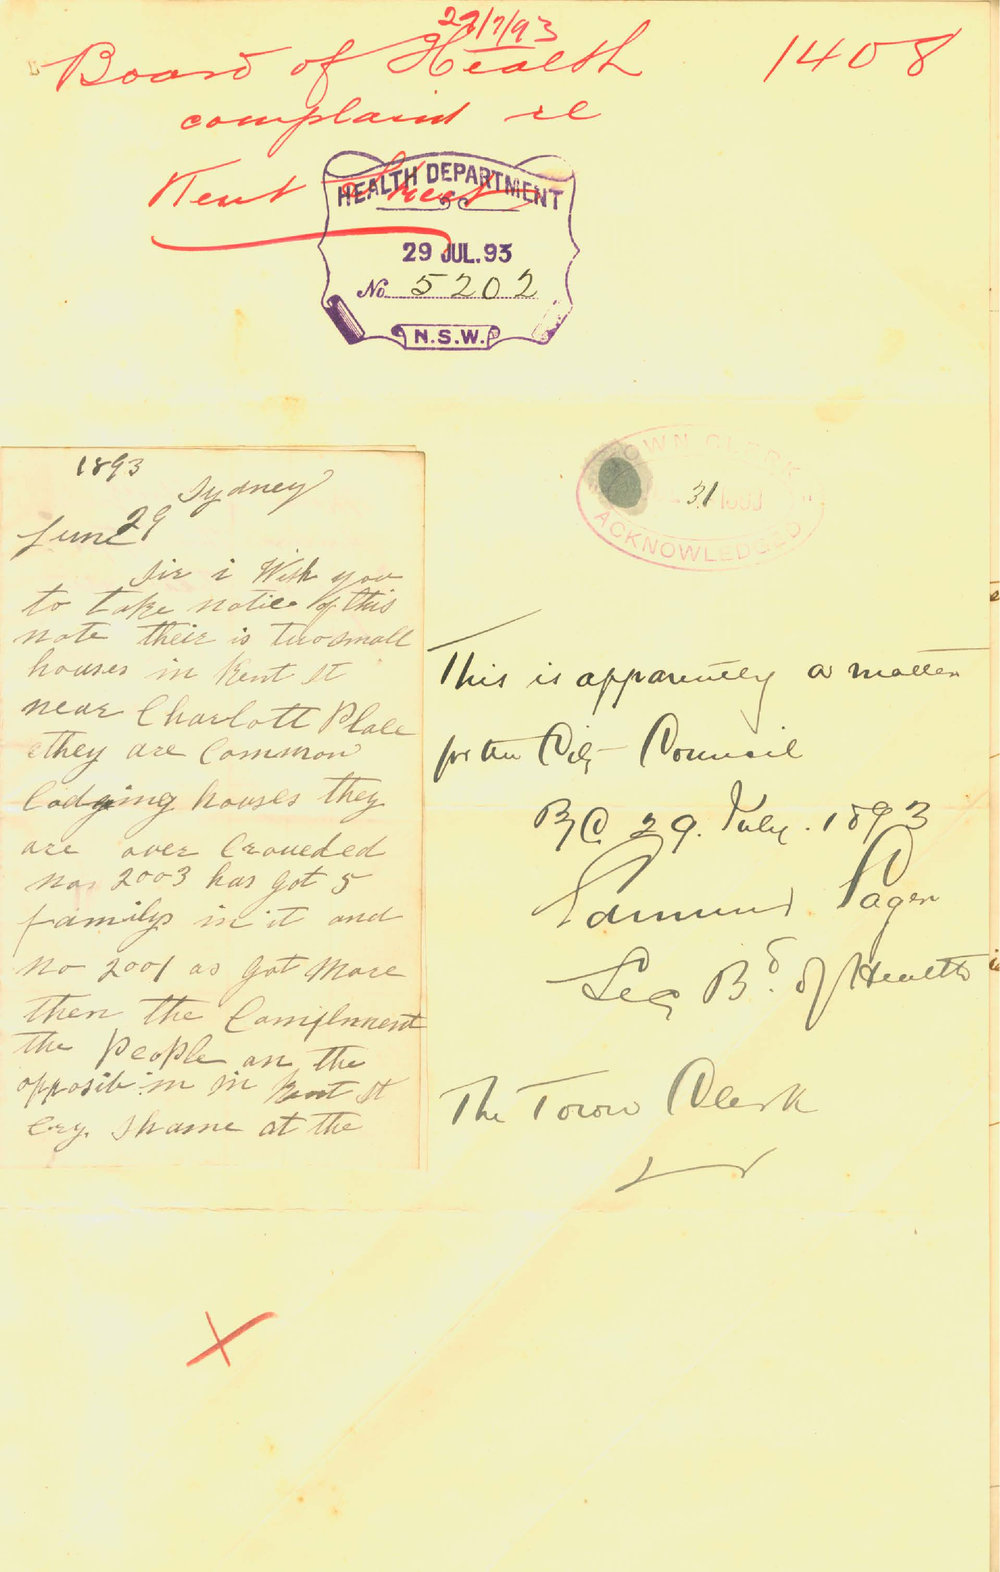 22/7/93
Board of Health 1408
complaint re
Kent Street
HEALTH DEPARTMENT
29 JUL. 93
No 5202
N.S.W.
1893
Sydney
June 29
Sir i Wish you
to take notice of this
note their is two small
houses in Kent St
near Charlott Place
they are Common
Lodging houses they
are over Crouded
No. 2003 has got 5
familys in it and
No 2001 as got More
then the Compliment
the People on the
opposit in Kent St
Cry. Shame at the
TOWN CLERK
31
ACKNOWLEDGED
This is apparently a matter
for the City Council
BC 29. July. 1893
Edmund Sager
Sec Bd. of Health
The Town Clerk